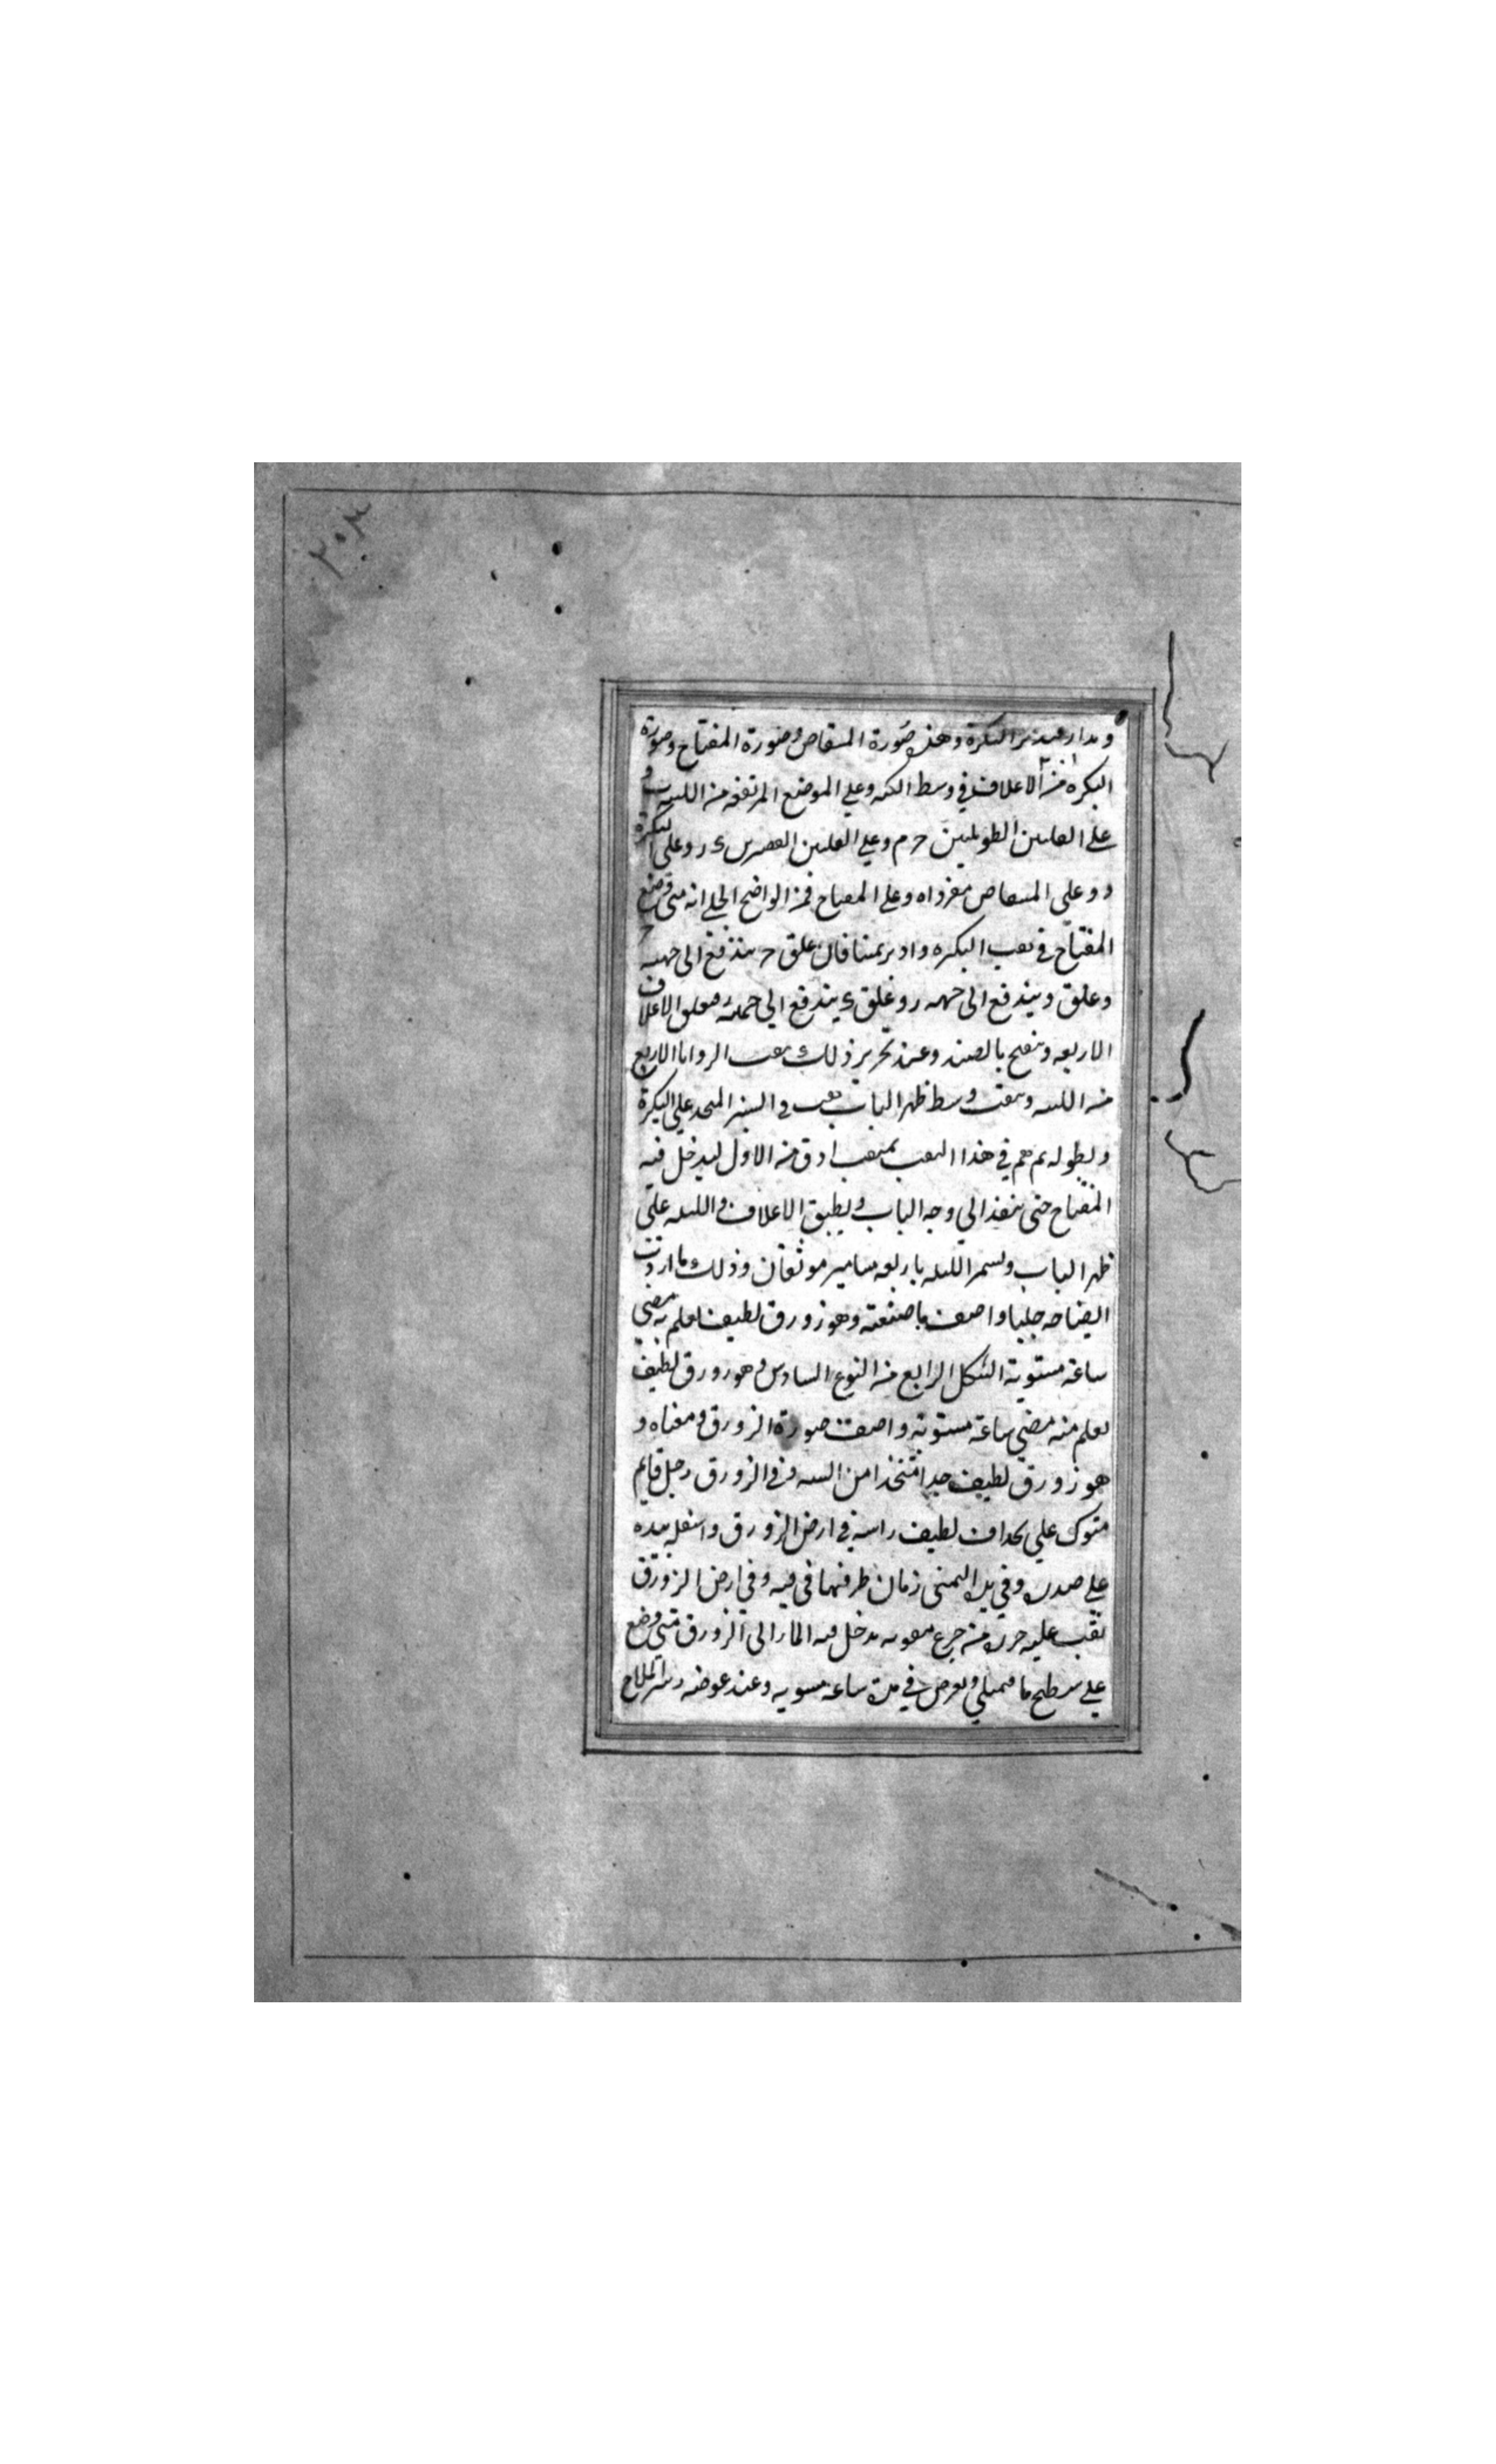 ٢٠٣
ومدار عند تدير البكرة وهذه صورة المنقاص وصورة المفتاح وصورة
البكره من الاغلاق في وسط الكه وعلي الموضع المرتفعه من اللبنه
علي الغلقين الطويلين ح م وعلي الغلقين القصيرين ر وعلي البكرة
د وعلي المنقاص مفرداه وعلي المفتاح فمن الواضح الجلي انه متي وضع
المفتاح في ثقب البكره وادير يمنا فان غلق ح يندفع الى جهه
وغلق د يندفع الى جهه ر وغلق ء يندفع الي جهة فيغلق الاغلاق
الاربعه وينفتح بالضد وعند تحرير ذلك يثقب الزوايا الاربع
من اللبنه ويثقب وسط ظهر الباب ثقب السير المتحد علي البكرة
وبطوله ثم همم في هذا الثقب بمثقب ادق من الاول ليدخل فيه
المفتاح حتى ينفذ الي وجه الباب ويطبق الاغلاق واللبنه علي
ظهر الباب ويسمر اللبنه باربعه مسامير موثقان وذلك ما اردت
ايضاحه جليا واصف ما صنعته وهو زورق لطيف يعلم به مضي
ساعة مستوية الشكل الرابع من النوع السادس وهو زورق لطيف
يعلم منه مضي ساعة مستويه واصف صورة الزورق ومعناه و
هو زورق لطيف جدا متخذا من الشبه وفي الزورق رجل قايم
متوك علي مجداف لطيف راسه في ارض الزورق واسفله بيده
علي صدره وفي يده اليمنى زمان طرفها في فيه وفي ارض الزورق
ثقب عليه خرزه من جزع مثقوبه يدخل فيه الماء الى الزورق متى وضع
علي سطح ما فيمتلي ويغوص في مدة ساعه مستويه وعند غوصه يزمر الملاح